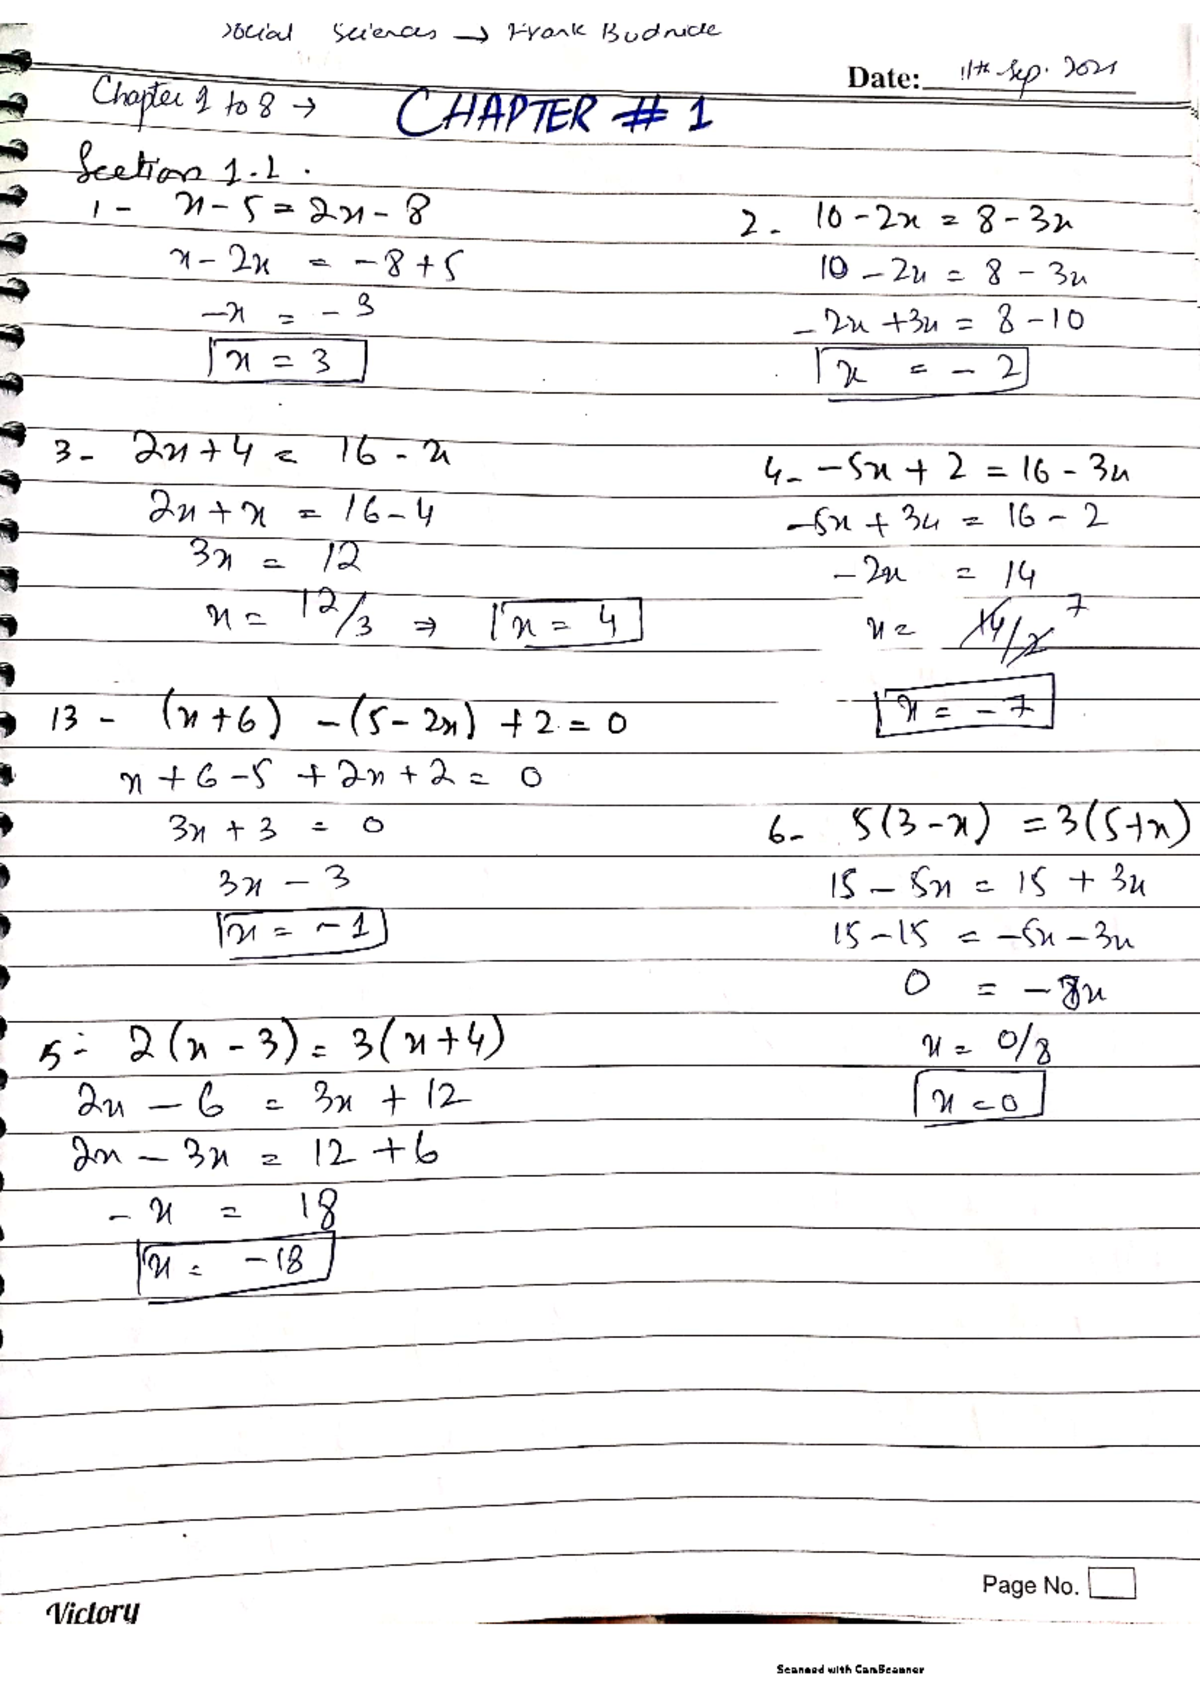 Social Sciences → Frank Budnick
Date: 11th Sep. 2021
Chapter 1 to 8 → CHAPTER # 1
Section 1.1.
1- x-5 = 2x-8
x-2x = -8+5
-x = -3
x = 3
2- 10-2x = 8-3x
10-2x = 8-3x
-2x+3x = 8-10
x = -2
3- 2x+4 = 16-x
2x+x = 16-4
3x = 12
x = 12/3 ⇒ x = 4
4- -5x+2 = 16-3x
-5x+3x = 16-2
-2x = 14
x = 14/2 7
x = -7
13- (x+6) -(5-2x) +2 = 0
x+6-5+2x+2 = 0
3x+3 = 0
3x - 3
x = -1
6- 5(3-x) = 3(5+x)
15-5x = 15+3x
15-15 = -5x-3x
0 = -8x
x = 0/8
x = 0
5- 2(x-3) = 3(x+4)
2x-6 = 3x+12
2x-3x = 12+6
-x = 18
x = -18
Page No.
Victory
Scanned with CamScanner